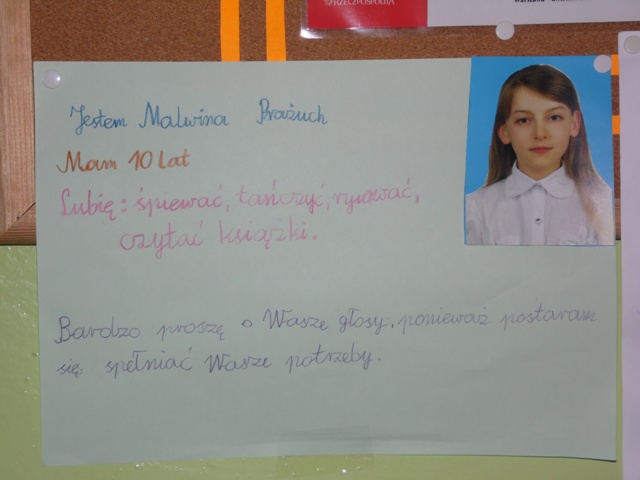 RZECZPOSPOLITA
Jestem Malwina Prażuch
Mam 10 lat
Lubię: śpiewać, tańczyć, rysować,
czytać książki.
Bardzo proszę o Wasze głosy, ponieważ postaram
się spełniać Wasze potrzeby.